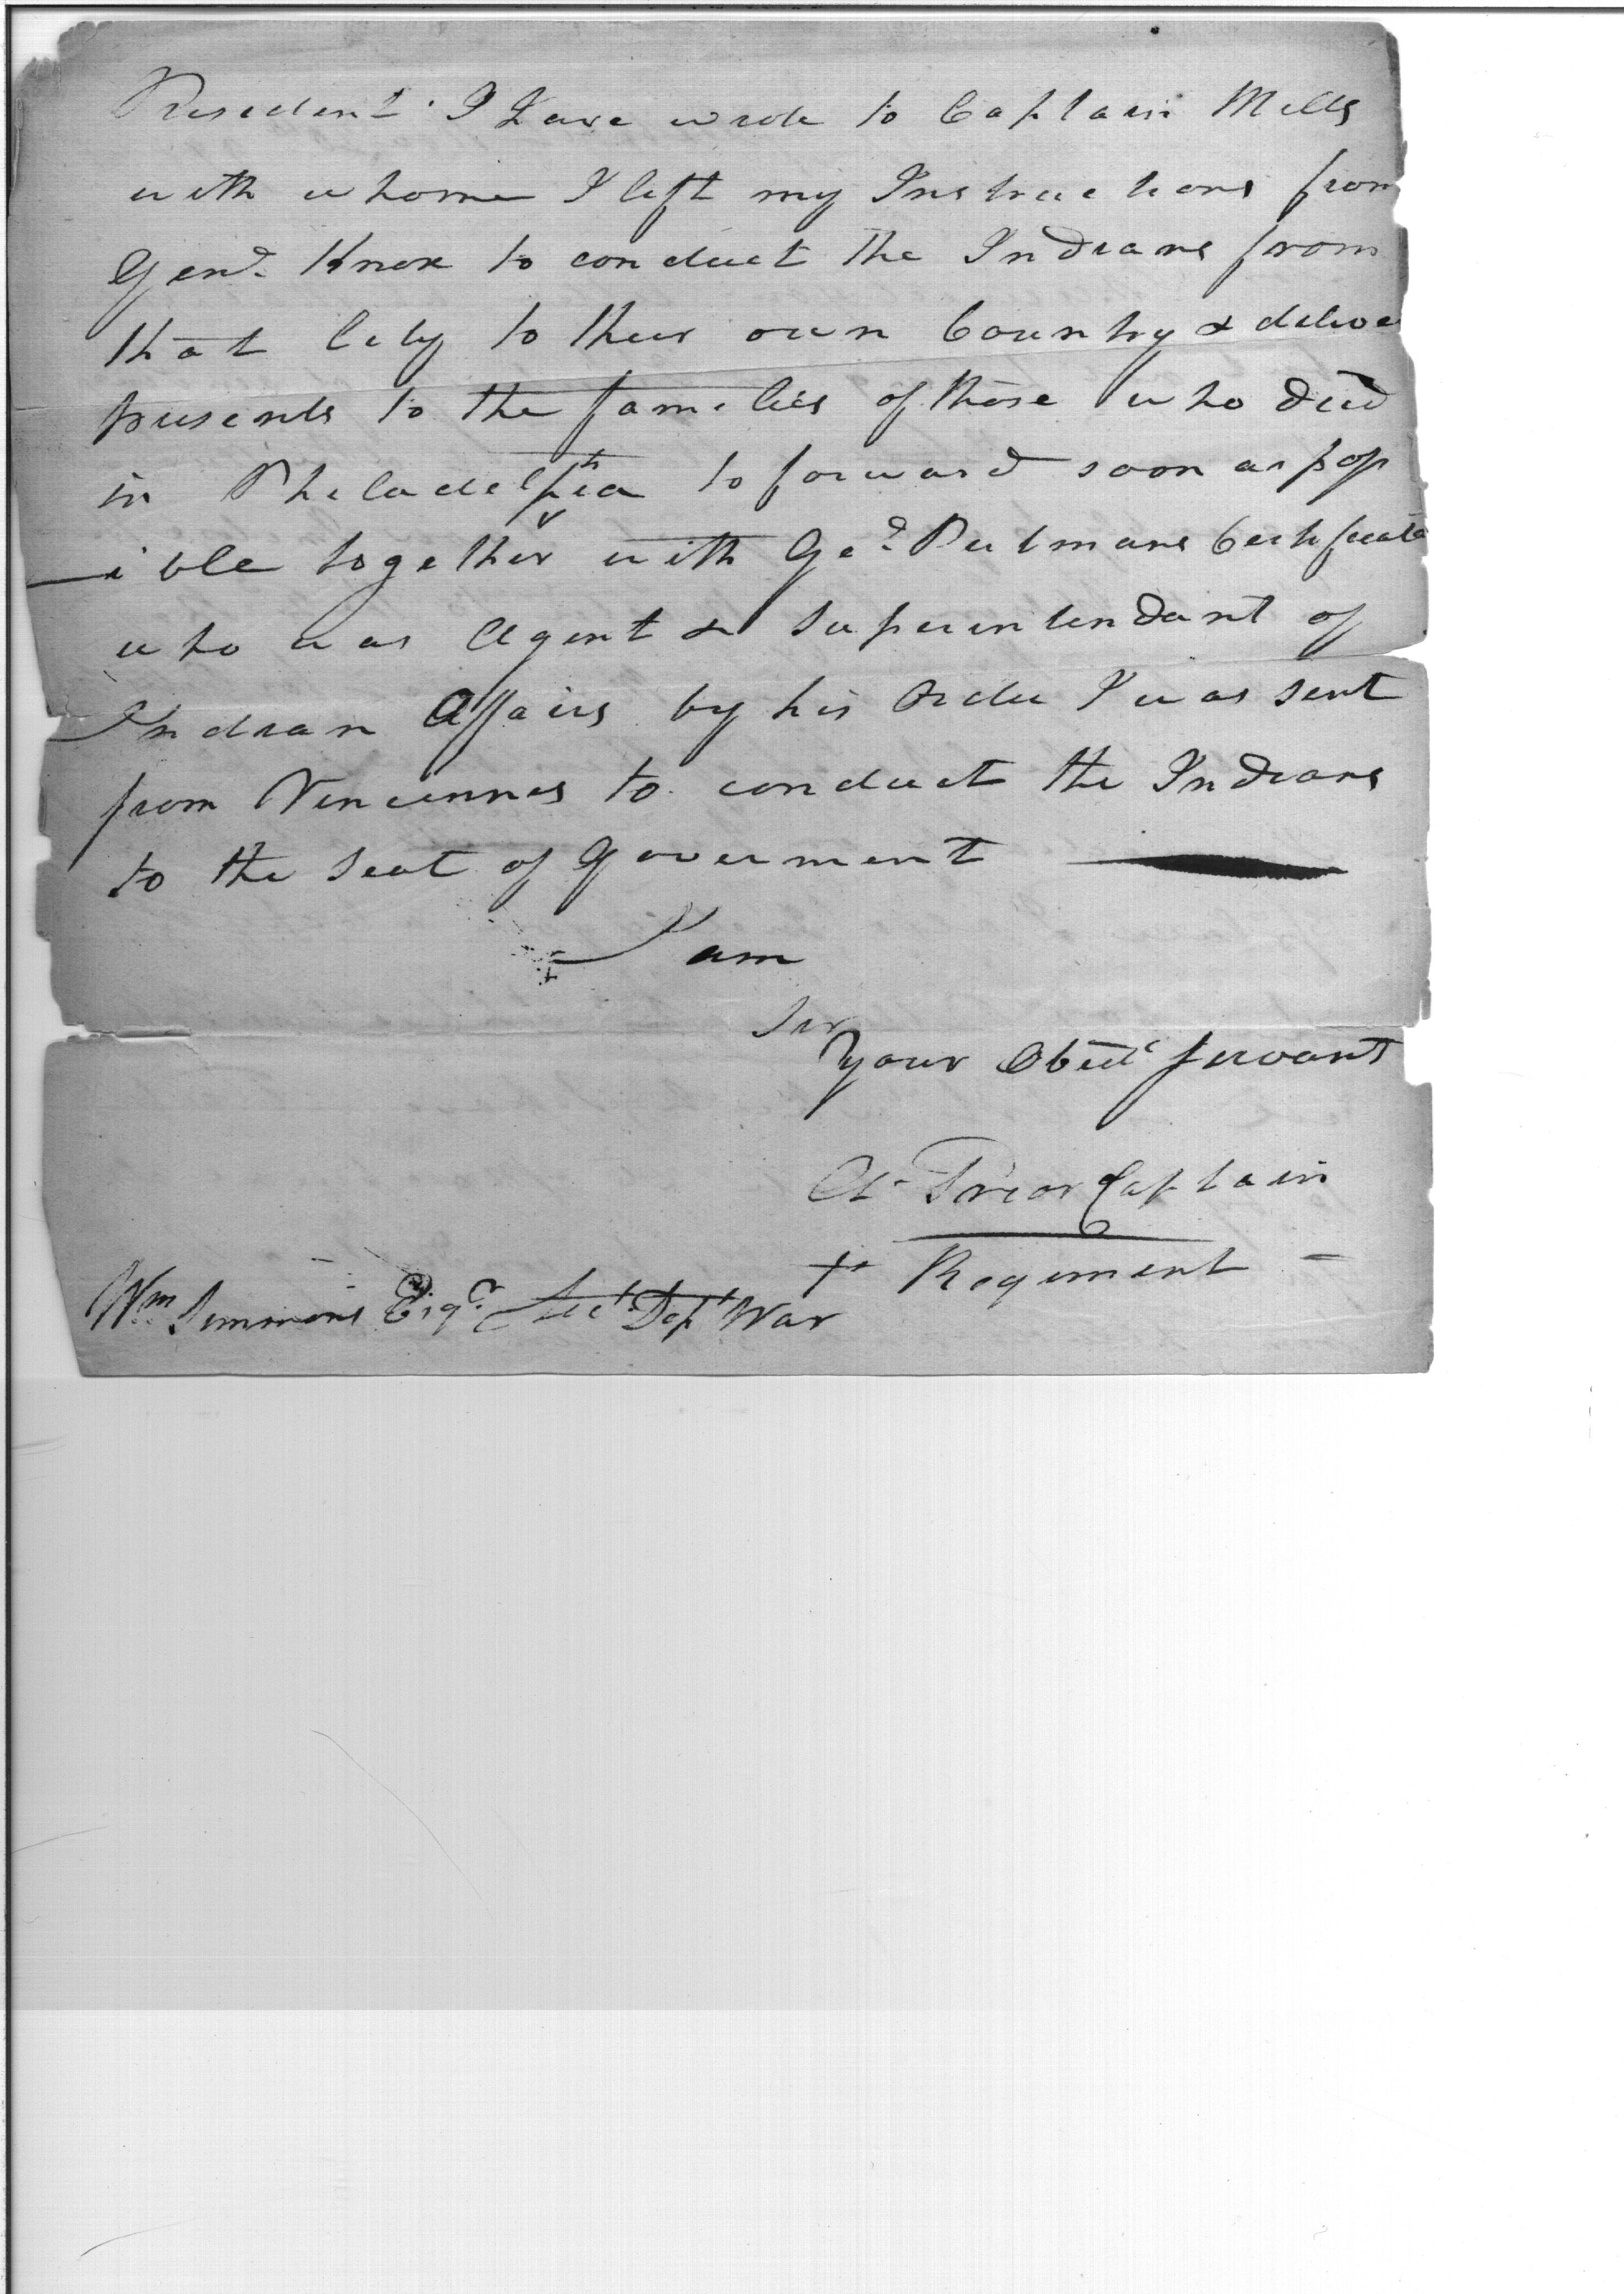 President I Have wrote to Captain Mills
with whome I left my Instructions from
Genl. Knox to conduct the Indians from
that City to their own Country & deliver
presents to the families of those who died
in Philadelphia to forward soon as pos
ible together with Gel. Putmans Certificate
who was Agent & Superintendant of
Indian Affairs by his Order I was sent
from Vincennes to conduct the Indians
to the Seat of Goverment
I am
Sir
Your Obedt Servant
A. Prior Captain
Regiment
Wm. Simmons Esqr. Acct. Dept War